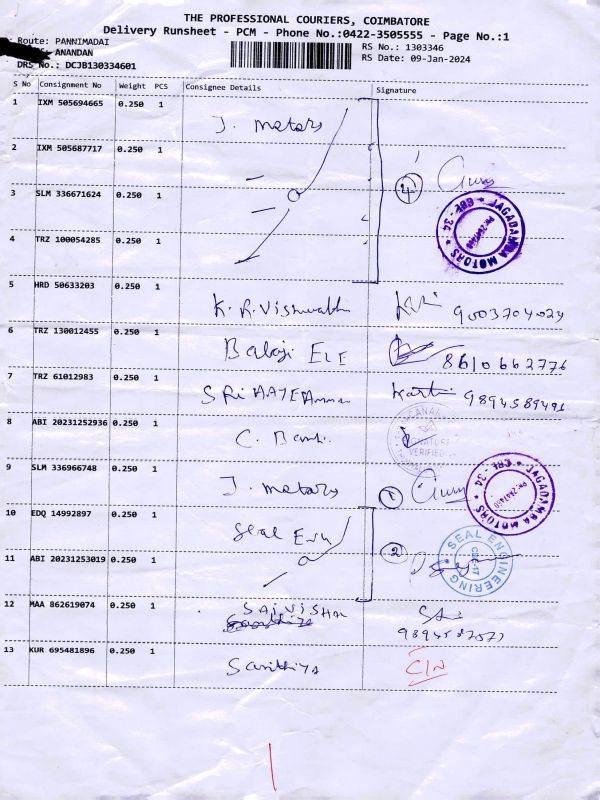 THE PROFESSIONAL COURIERS, COIMBATORE
Delivery Runsheet - PCM - Phone No.:0422-3505555 - Page No.:1
Route: PANNIMADAI
RS No.: 1303346
ANANDAN
RS Date: 09-Jan-2024
DRS No.: DCJB130334601
S No Consignment No Weight PCS Consignee Details Signature
1 IXM 505694665 0.250 1 J. Motors
2 IXM 505687717 0.250 1
3 SLM 336671624 0.250 1
4
JAGADAMBA MOTORS
CBE - 34
4 TRZ 100054285 0.250 1
5 HRD 50633203 0.250 1 K. R. Vishwabh 9003704024
6 TRZ 130012455 0.250 1 Balaji ELE 8610662776
7 TRZ 61012983 0.250 1 SRi Karti 9894589491
8 ABI 20231252936 0.250 1 C. Bank.
SIGNATURE VERIFIED
9 SLM 336966748 0.250 1 J. Motors 1
JAGADAMBA MOTORS
CBE - 34
10 EDQ 14992897 0.250 1 Seal 2
SEAL ENGINEERING
CBE-17
11 ABI 20231253019 0.250 1
12 MAA 862619074 0.250 1 SAIVISHAL
13 KUR 695481896 0.250 1 Santhiya C/N